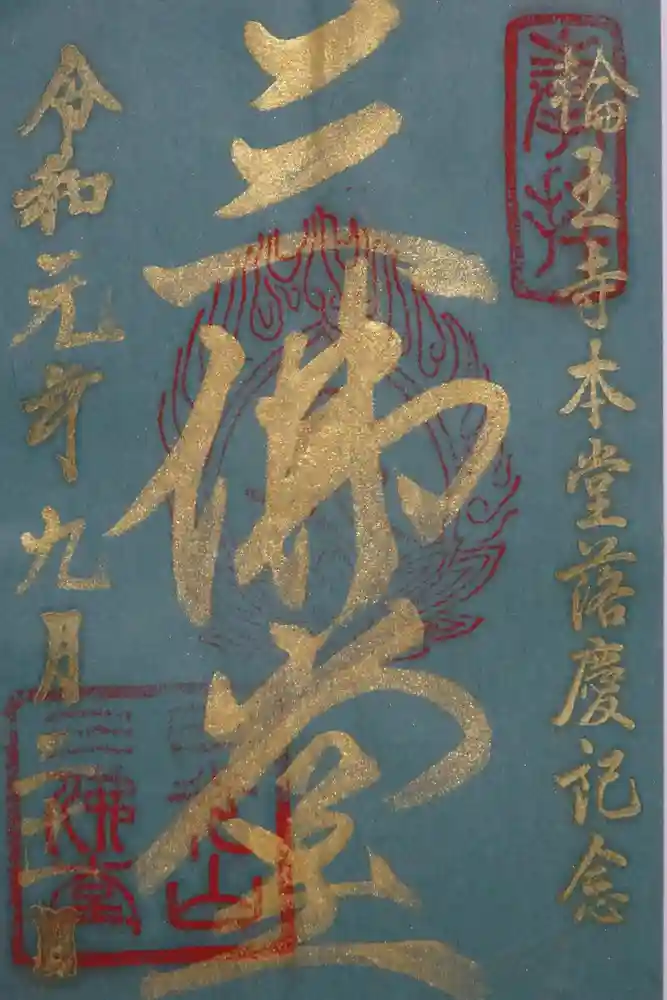 奉拝
輪王寺本堂落慶記念
三佛堂
令和元年九月二十一日
日光山
三佛堂